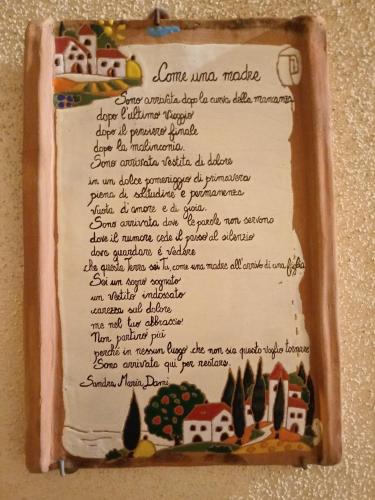 Come una madre
Sono arrivata dopo la curva della mancanza
dopo l'ultimo viaggio
dopo il pensiero finale
dopo la malinconia.
Sono arrivata vestita di dolore
in un dolce pomeriggio di primavera
piena di solitudine e permanenza
vuota d'amore e di gioia.
Sono arrivata dove le parole non servono
dove il rumore cede il passo al silenzio
dove guardare è vedere
che questa Terra sei Tu, come una madre all'arrivo di una figlia
Sei un sogno sognato
un vestito indossato
carezza sul dolore
me nel tuo abbraccio
Non partirò più
perché in nessun luogo che non sia questo voglio tornare
Sono arrivata qui per restare.
Sandra Maria